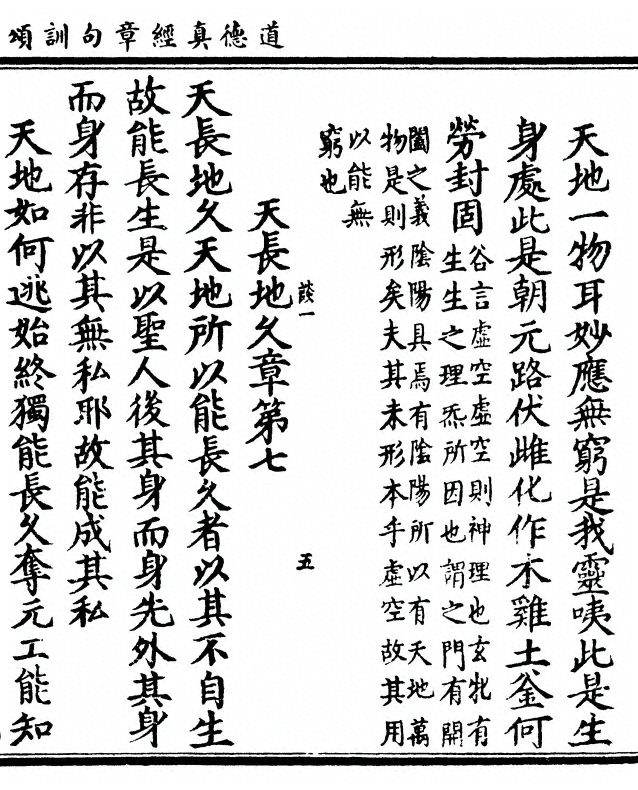 道德真經章句訓頌
天地一物耳妙應無窮是我靈咦此是生
身處此是朝元路伏雌化作木雞土釜何
勞封固
谷言虛空虛空則神理也玄牝有
生生之理炁所因也謂之門有開
闔之義陰陽具焉有陰陽所以有天地萬
物是則形矣夫其未形本乎虛空故其用
以能無
窮也
談一
五
天長地久章第七
天長地久天地所以能長久者以其不自生
故能長生是以聖人後其身而身先外其身
而身存非以其無私耶故能成其私
天地如何逃始終獨能長久奪元工能知